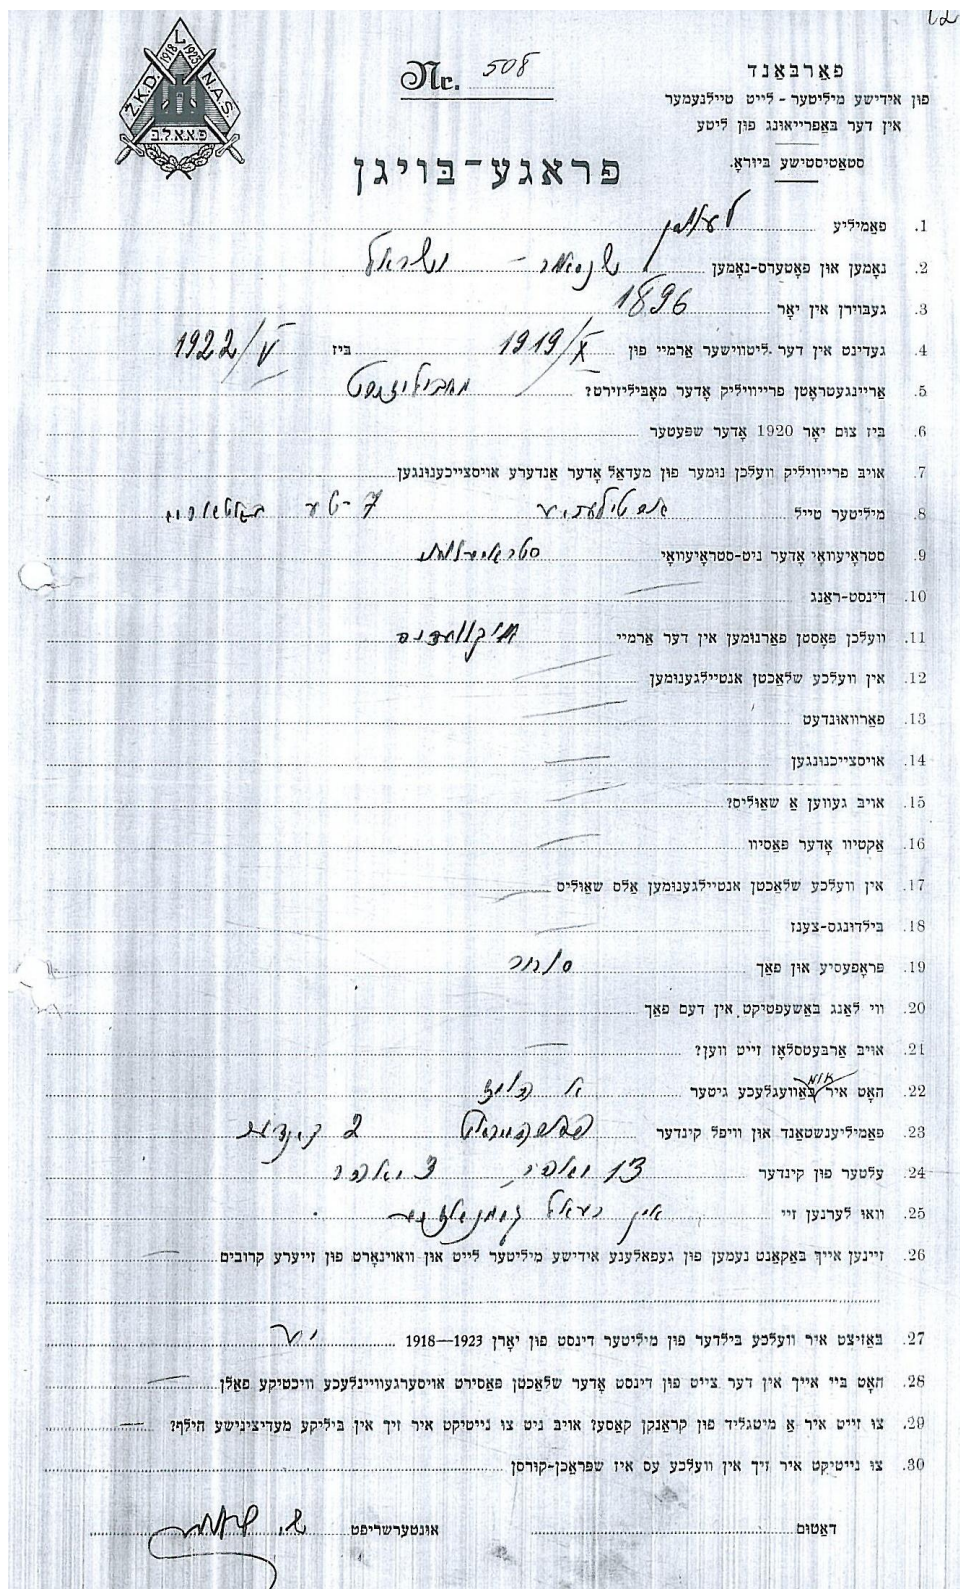 Nr. 508
פֿאַרבאַנד
פון אידישע מיליטער - לייט טיילנעמער
אין דער באַפרייאונג פון ליטע
סטאַטיסטישע ביוראָ.
L
1918 1923
Ž.K.D. N.A.S
פ.א.א.ל.ב
פראגע-בויגן
1. פאַמיליע
2. נאָמען און פאָטערס-נאָמען שניאור - ישראל
3. געבוירן אין יאָר 1896
4. געדינט אין דער ליטווישער אַרמיי פון 1919/X ביז 1922/V
5. אַריינגעטראָטן פרייוויליק אָדער מאָביליזירט? מאביליזירט
6. ביז צום יאָר 1920 אָדער שפּעטער
7. אויב פרייוויליק וועלכן נומער פון מעדאַל אָדער אַנדערע אויסצייכענונגען
8. מיליטער טייל ארטילעריע 7-טע
9. סטראָיעוואָי אָדער ניט-סטראָיעוואָי
10. דינסט-ראַנג
11. וועלכן פּאָסטן פאַרנומען אין דער אַרמיי
12. אין וועלכע שלאַכטן אנטיילגענומען
13. פאַרוואונדעט
14. אויסצייכנונגען
15. אויב געווען אַ שאַוליס?
16. אַקטיוו אָדער פּאַסיוו
17. אין וועלכע שלאַכטן אנטיילגענומען אַלס שאַוליס
18. בילדונגס-צענז
19. פּראָפעסיע און פאַך סוחר
20. ווי לאַנג באַשעפטיקט אין דעם פאַך
21. אויב אַרבעטסלאָז זייט ווען?
22. האָט איר אומ באַוועגלעכע גיטער א הויז
23. פאַמיליענשטאַנד און וויפל קינדער 2 קינדער
24. עלטער פון קינדער
25. וואו לערנען זיי אין
26. זיינען אייך באַקאַנט נעמען פון געפאַלענע אידישע מיליטער לייט און וואוינאָרט פון זייערע קרובים
27. באַזיצט איר וועלכע בילדער פון מיליטער דינסט פון יאָרן 1923—1918
28. האָט ביי אייך אין דער צייט פון דינסט אָדער שלאַכטן פּאַסירט אויסערגעוויינלעכע וויכטיקע פאַלן
29. צו זייט איר אַ מיטגליד פון קראַנקן קאַסע? אויב ניט צו נייטיקט איר זיך אין ביליקע מעדיצינישע הילף?
30. צו נייטיקט איר זיך אין וועלכע עס איז שפּראַכן-קורסן
דאַטום אונטערשריפט